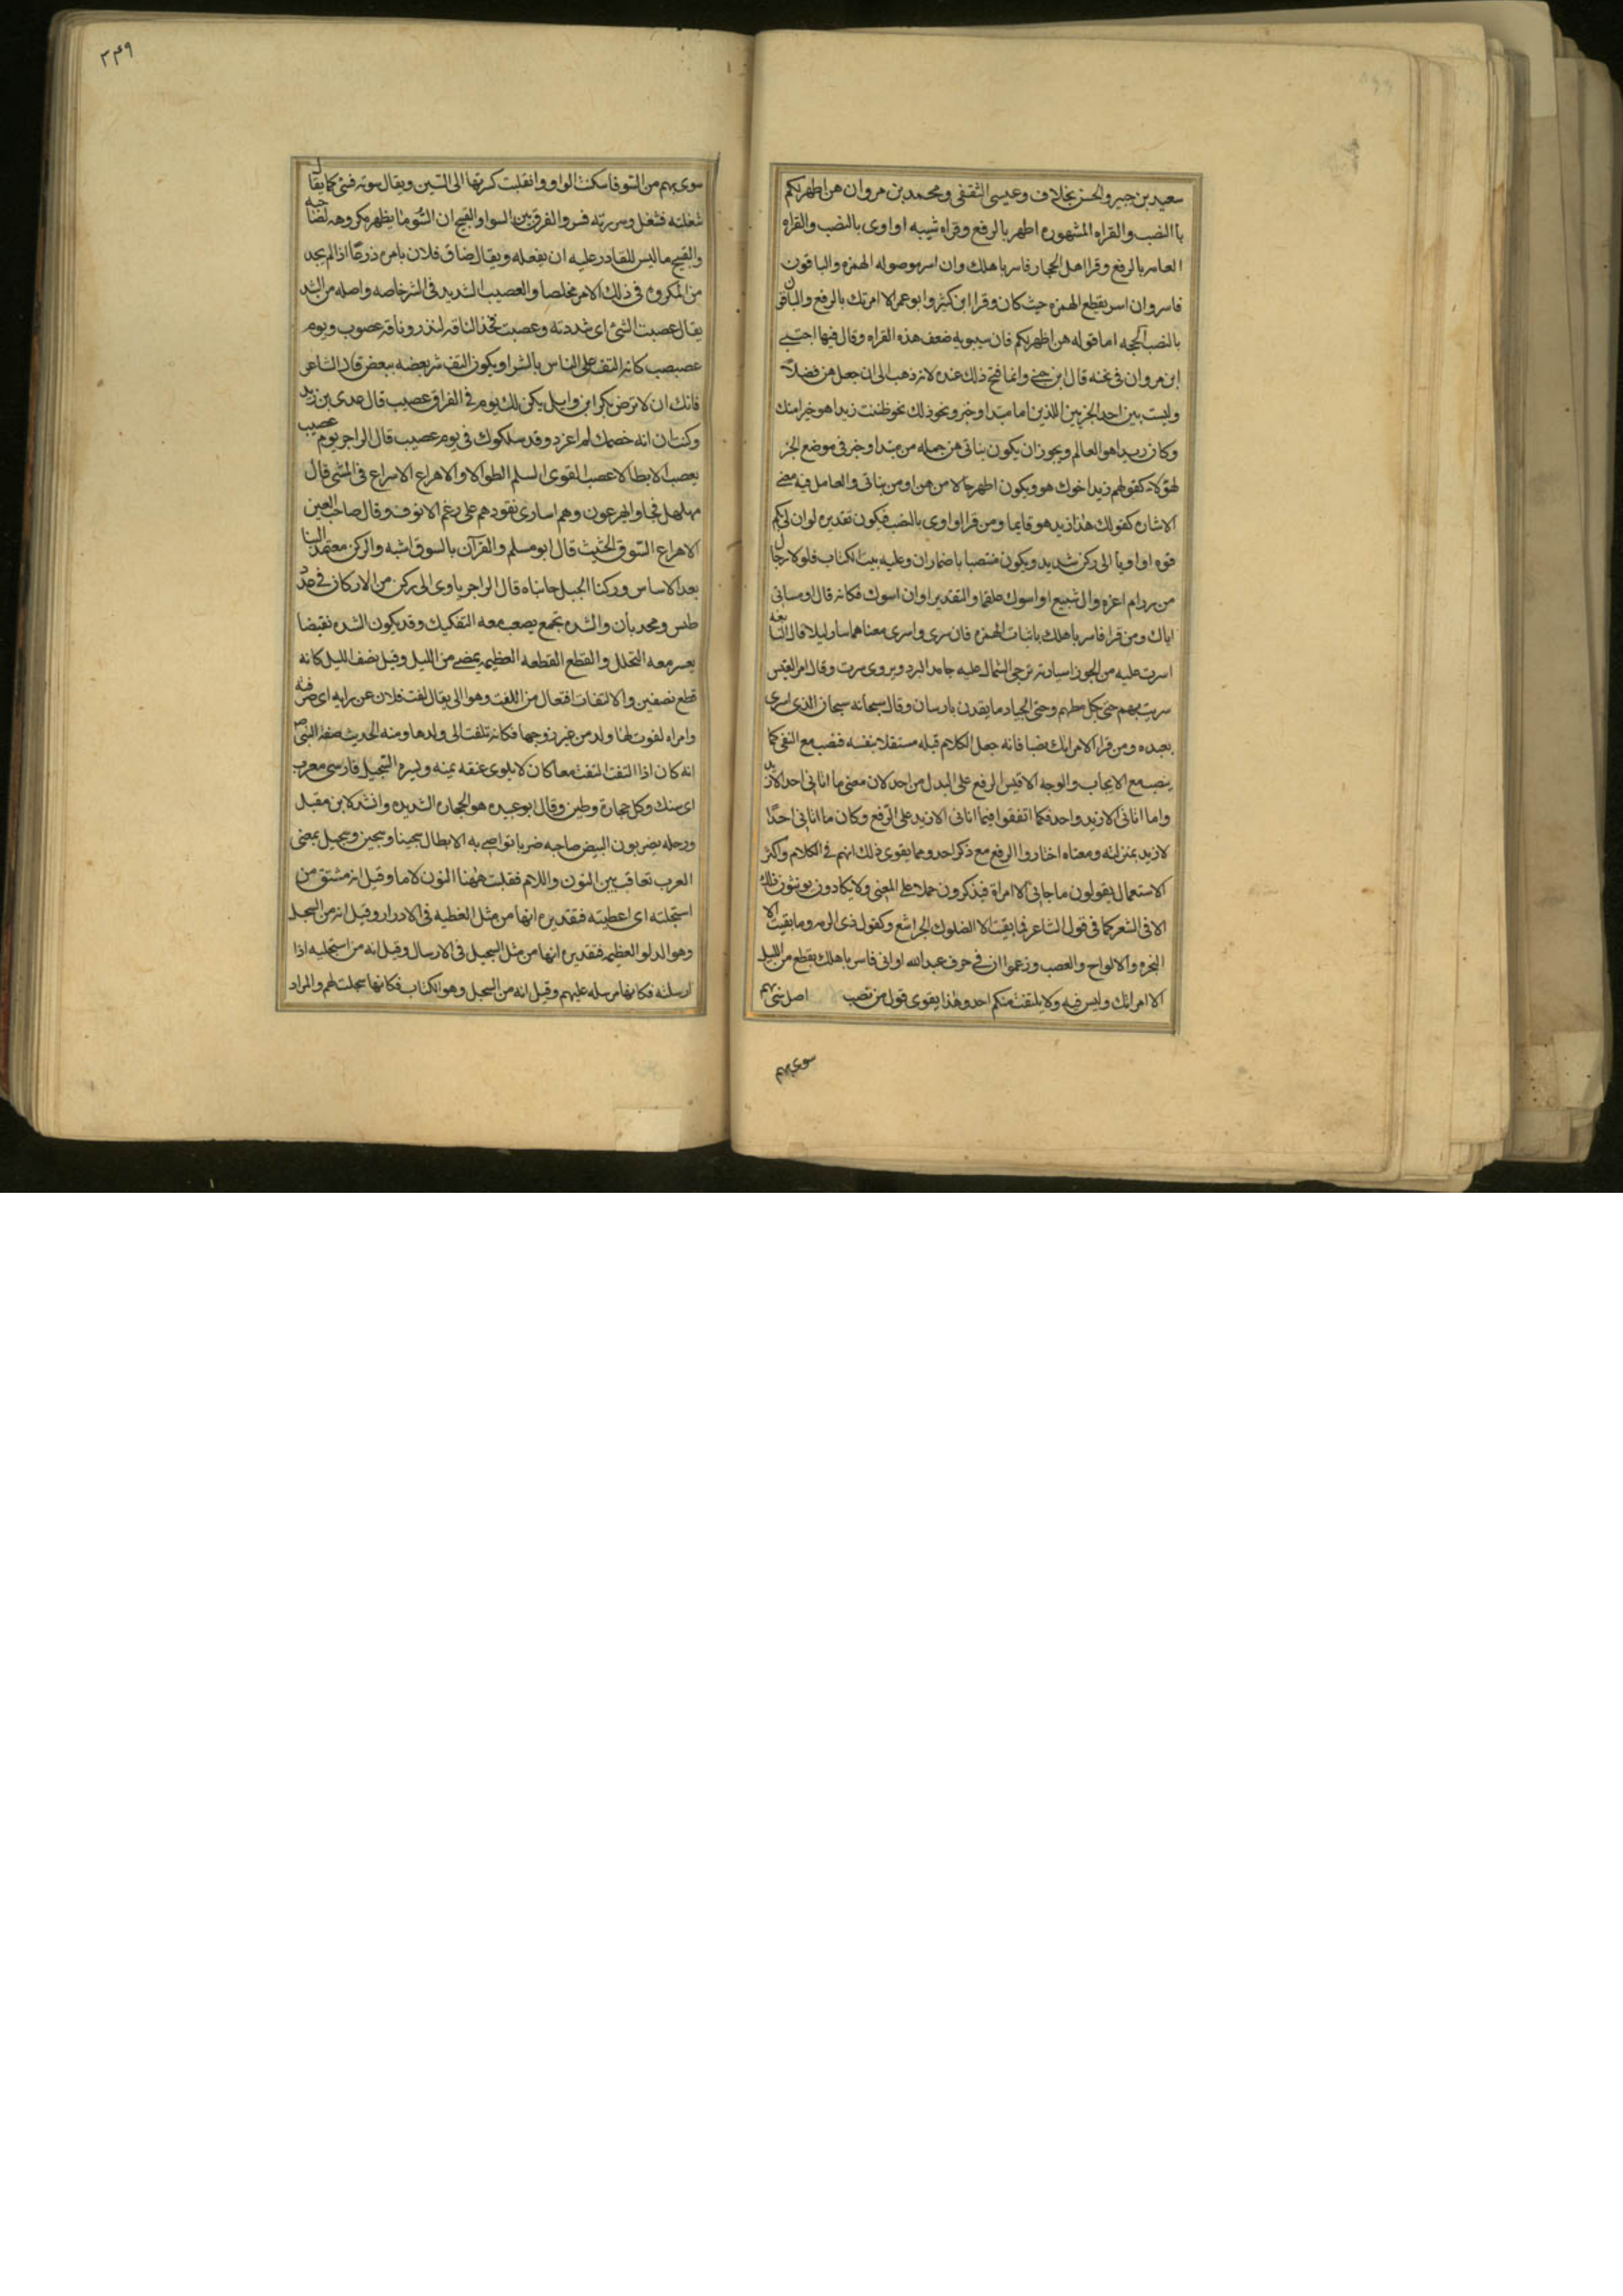 سعيد بن جبير والحسن بخلاف وعيسى الثقفى ومحمد بن مروان هن اطهر لكم
باالنصب والقراه المشهوره اطهر بالرفع وقراه شيبه او اوى بالنصب والقراه
العامه بالرفع وقرا اهل الحجاز فاسر باهلك وان اسر موصوله الهمزه والباقون
فاسر وان اسر بقطع الهمزه حيث كان وقرا ابن كثير وابو عمر الا امرتك بالرفع والباقون
بالنصب الحجه اما قوله هن اطهر لكم فان سيبويه ضعف هذه القراه وقال فيها احتبى
ابن مروان فى لحنه قال ابن جنى وانما قبح ذلك عنده لانه ذهب الى ان جعل هن فضلا
وليست بين احد الجزين اللذين اما مبتدا وخبر ونحو ذلك نحو ظننت زيدا هو خيرا منك
وكان زيدا هو العالم ويجوز ان يكون بناتى هن جمله من مبتدا وخبر فى موضع الخبر
لهولاء كقولهم زيد اخوك هو ويكون اطهر حالا من هن او من بناتى والعامل فيه معنى
الاشاره كقولك هذا زيد هو قايما ومن قرا او اوى بالنصب فيكون تقديره لو ان لى بكم
قوه او اويا الى ركن شديد ويكون منتصبا باضمار ان وعليه بيت الكتاب فلولا رجال
من رزام اعزه وال شبيع او اسوك علقما والتقدير او ان اسوك فكانه قال او مساتى
اياك ومن قرا فاسر باهلك باثبات الهمزه فان سرى واسرى معناهما سار ليلا قال النابغه
اسرت عليه من الجوزا ساريه تزجى الشمال عليه جامد البرد ويروى سرت وقال امر القيس
سريت بهم حتى تكل مطيهم وحتى الجياد ما يقدن بارسان وقال سبحانه سبحان الذى اسرى
بعبده ومن قرا الا امراتك نصبا فانه جعل الكلام قبله مستقلا بنفسه فنصب مع النفى كما
ينصب مع الايجاب والوجه الاقيس الرفع على البدل من احد لان معنى ما اتانى احد الا زيد
واما اتانى الا زيد واحد فكما اتفقوا فيما اتانى الا زيد على الرفع وكان ما اتانى احدا
لا زيد بمنزلته ومعناه اختاروا الرفع مع ذكر احد ومما يقوى ذلك انهم فى الكلام واكثر
الاستعمال يقولون ما جانى الا امراة فيذكرون حملا على المعنى ولا يكادون يونثون ذلك
الا فى الشعر كما فى قول الشاعر فما بقيت الا الضلوع الجراشع وكقول ذى الرمه وما بقيت الا
النحزه والالواح والعصب وزعموا ان فى حرف عبد الله او ابى فاسر باهلك بقطع من الليل
الا امراتك وليس فيه ولا يلتفت منكم احد وهذا يقوى قول من نصب اصل سى بهم
سوى بهم
٣٤٩
سوى بهم من السو فاسكنت الواو وانقلبت كسرتها الى السين ويقال سوته فسى كما يقال
شغلته فشغل وسررته فسر والفرق بين السوا والقبح ان السو ما يظهر مكروهه لصاحبه
والقبيح ما ليس للقادر عليه ان يفعله ويقال ضاق فلان بامره ذرعا اذا لم يجد
من المكروه فى ذلك الامر مخلصا والعصيب الشديد فى الشر خاصه واصله من الشد
يقال عصبت الشئ اى شددته وعصبت فخذ الناقه لتدر وناقه عصوب ويوم
عصبصب كانه التف على الناس بالشر او يكون التف شر بعضه ببعض قال الشاعر
فانك ان لا ترض بكر ابن وايل يكن لك يوم فى العراق عصيب قال عدى بن زيد
وكنت ان انه خصمك لم اعرد وقد سلكوك فى يوم عصيب قال الراجز يوم عصيب
يعصب الابطالا عصب القوى السلم الطوالا والاهراع الاسراع فى المشى قال
مهلهل فجاوا يهرعون وهم اسارى نقودهم على رغم الانوف وقال صاحب العين
الاهراع السوق الحثيث قال ابو مسلم والقرآن بالسوق اشبه والركن معتمد البنا
بعد الاساس وركنا الجبل جانباه قال الراجز ياوى الى ركن من الاركان فى عدد
طيس ومجد بان والشده تجمع يصعب معه التفكيك وقد يكون الشده تقبضا
يعسر معه التحلل والقطع القطعه العظيمه يمضى من الليل وقيل نصف الليل كانه
قطع نصفين والالتفات افتعال من اللفت وهو اللى يقال لفت فلان عن رايه اى صرفته
وامراه لفوت لها ولد من غير زوجها فكانه تلفت الى ولدها ومنه الحديث صفة النبى ص
انه كان اذا التفت التفت معا كان لا يلوى عنقه يمنه ويسره السجيل فارسى معرب
اى سنك وكل حجارة وطين وقال ابو عبيده هو الحجاره الشديده وانشد لابن مقبل
ورجله يضربون البيض ضاحيه ضربا تواصى به الابطال سجينا وسجين وسجيل بمعنى
العرب تعاقب بين النون واللام فقلبت ههنا النون لاما وقيل انه مشتق من
اسجلته اى اعطيته فتقديره انها من مثل العطيه فى الادرار وقيل انه من السجل
وهو الدلو العظيمه فتقديره انها من مثل السجيل فى الارسال وقيل انه من اسجلته اذا
ارسلته فكانها مرسله عليهم وقيل انه من السجل وهو الكتاب فكانها سجلت لهم والمراد